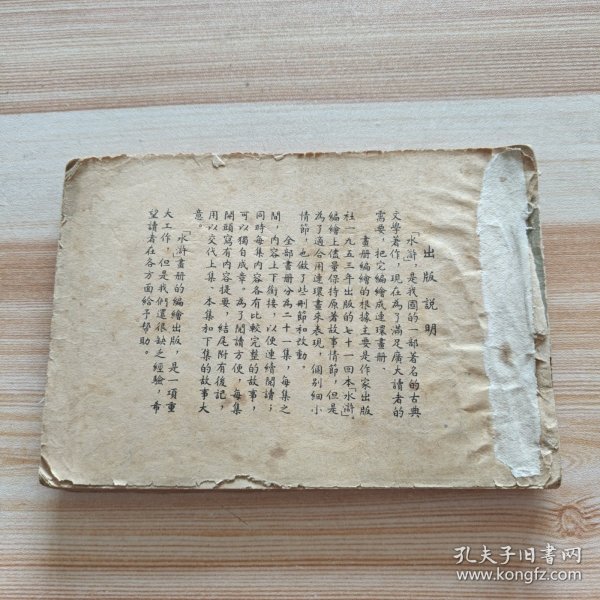 出版說明
「水滸」是我國的一部著名的古典
文學著作，現在為了滿足廣大讀者的
需要，把它編繪成連環畫册。
畫册編繪的根據主要是作家出版
社一九五三年出版的七十一回本「水滸」。
編繪上儘量保持原著故事情節，但是
為了適合用連環畫來表現，個别細小
情節，也做了些刪節和改動。
全部畫册分為二十一集，每集之
間，内容上下銜接，以便連續閱讀；
同時每集内容各有比較完整的故事，
可以獨自成章。為了閱讀方便，每集
開頭寫有内容提要，結尾附有後記，
用以交代上集、本集和下集的故事大
意。
「水滸」畫册的編繪出版，是一項重
大工作，但是我們還很缺乏經驗，希
望讀者在各方面給予幫助。
孔夫子旧书网
www.kongfz.com